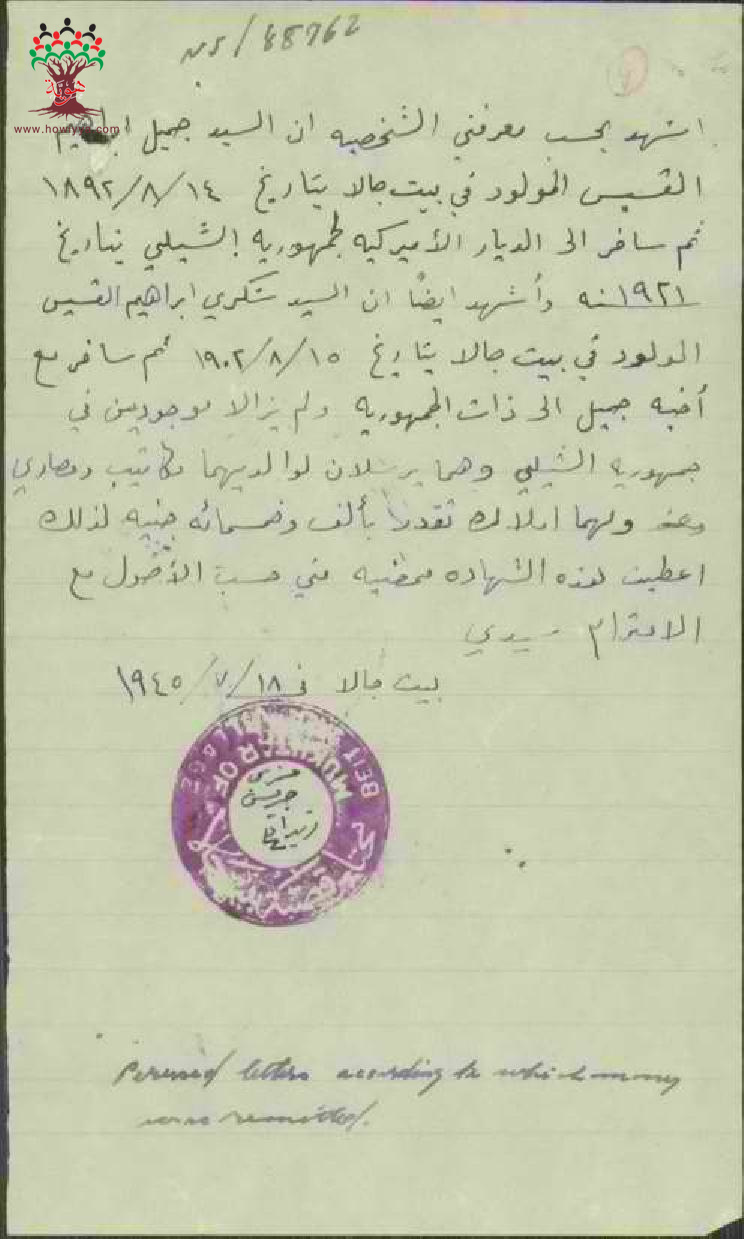 هوية
www.howiyya.com
NS/88762
اشهد بحسب معرفتي الشخصيه ان السيد جميل ابراهيم
القسيس المولود في بيت جالا بتاريخ ١٨٩٢/٨/١٤
ثم سافر الى الديار الأميركيه لجمهورية الشيلي بتاريخ
١٩٢١ سنه وأشهد ايضًا ان السيد شكري ابراهيم القسيس
المولود في بيت جالا بتاريخ ١٩٠٢/٨/١٥ ثم سافر مع
أخيه جميل الى ذات الجمهوريه ولم يزالا موجودين في
جمهورية الشيلي وهما يرسلان لوالديهما مكاتيب ومصاري
ولهما املاك تقدر بألف وخمسمائه جنيه لذلك
اعطيت هذه الشهاده ممضيه مني حسب الأصول مع
الاحترام سيدي
بيت جالا في ١٩٤٥/٧/١٨
MUKHTAR OF BEIT JALA VILLAGE
جريس
Perused letters according to which money
was remitted.